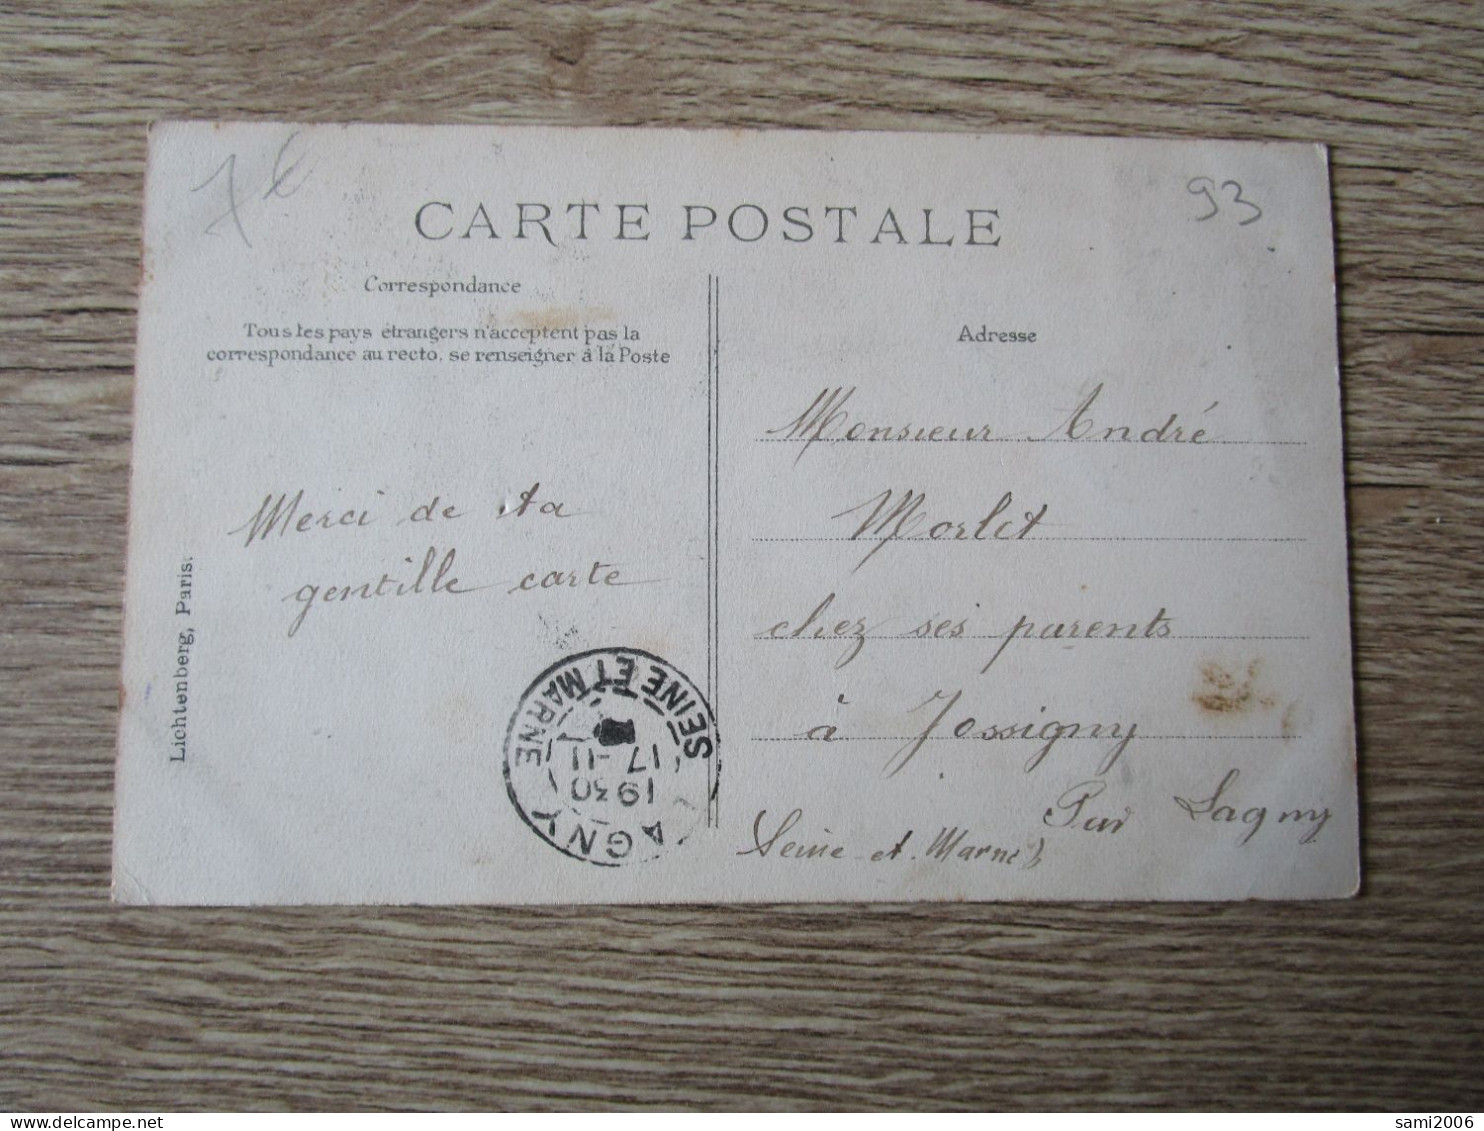 7€
93
CARTE POSTALE
Correspondance
Tous les pays étrangers n'acceptent pas la
correspondance au recto, se renseigner à la Poste
Merci de ta
gentille carte
Lichtenberg, Paris.
Adresse
Monsieur André
Morlet
chez ses parents
à Jossigny
Par Lagny
Seine et Marne
LAGNY
1930
17-11
SEINE ET MARNE
sami2006